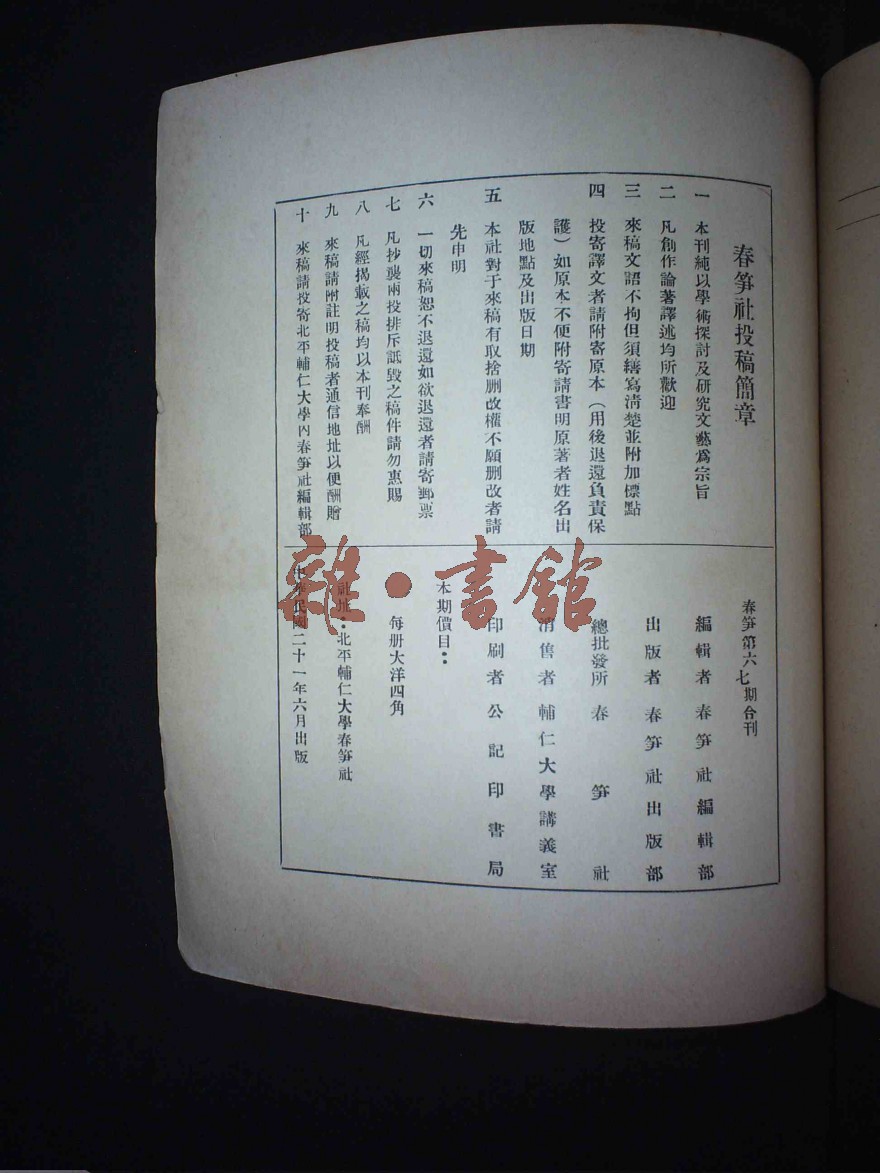 春笋社投稿簡章
一　本刊純以學術探討及研究文藝爲宗旨
二　凡創作論著譯述均所歡迎
三　來稿文語不拘但須繕寫清楚並附加標點
四　投寄譯文者請附寄原本（用後退還負責保
護）如原本不便附寄請書明原著者姓名出
版地點及出版日期
五　本社對于來稿有取捨删改權不願删改者請
先申明
六　一切來稿恕不退還如欲退還者請寄郵票
七　凡抄襲兩投排斥詆毀之稿件請勿惠賜
八　凡經揭載之稿均以本刊奉酬
九　來稿請附註明投稿者通信地址以便酬贈
十　來稿請投寄北平輔仁大學內春笋社編輯部
春笋第六七期合刊
編輯者　春笋社編輯部
出版者　春笋社出版部
總批發所　春笋社
消售者　輔仁大學講義室
印刷者　公記印書局
本期價目：
每册大洋四角
社址：北平輔仁大學春笋社
中華民國二十一年六月出版
雜·書館